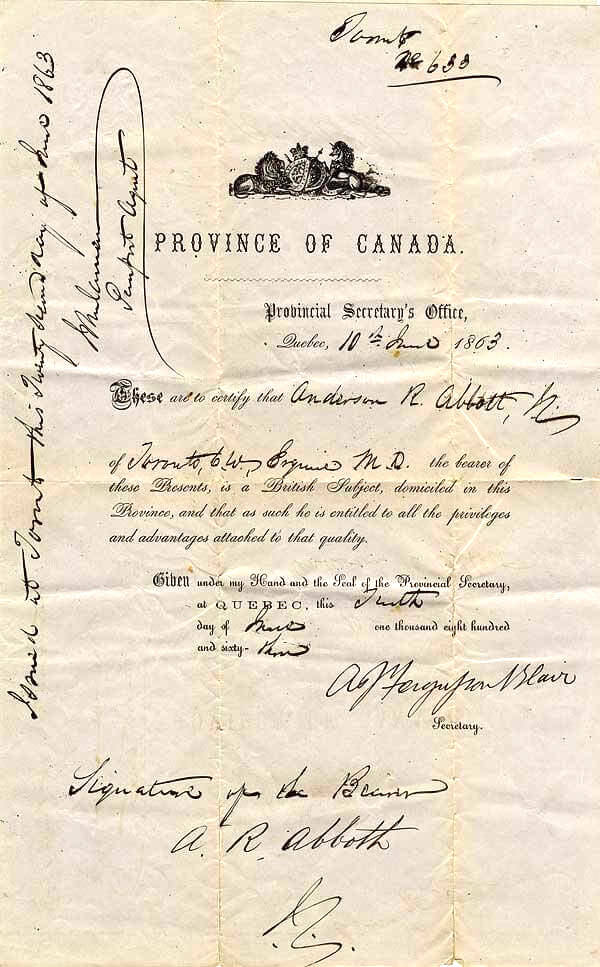 Toronto
No 633
PROVINCE OF CANADA.
Provincial Secretary's Office,
Quebec, 10th June 1863.
These are to certify that Anderson R. Abbott,
of Toronto, C.W., Esquire M.D. the bearer of
these Presents, is a British Subject, domiciled in this
Province, and that as such he is entitled to all the privileges
and advantages attached to that quality.
Given under my Hand and the Seal of the Provincial Secretary,
at QUEBEC, this Tenth
day of June one thousand eight hundred
and sixty-three
A J Fergusson Blair
Secretary.
Signature of the Bearer
A. R. Abbott
Issued at Toronto this Twenty second day of June 1863
Passport Agent